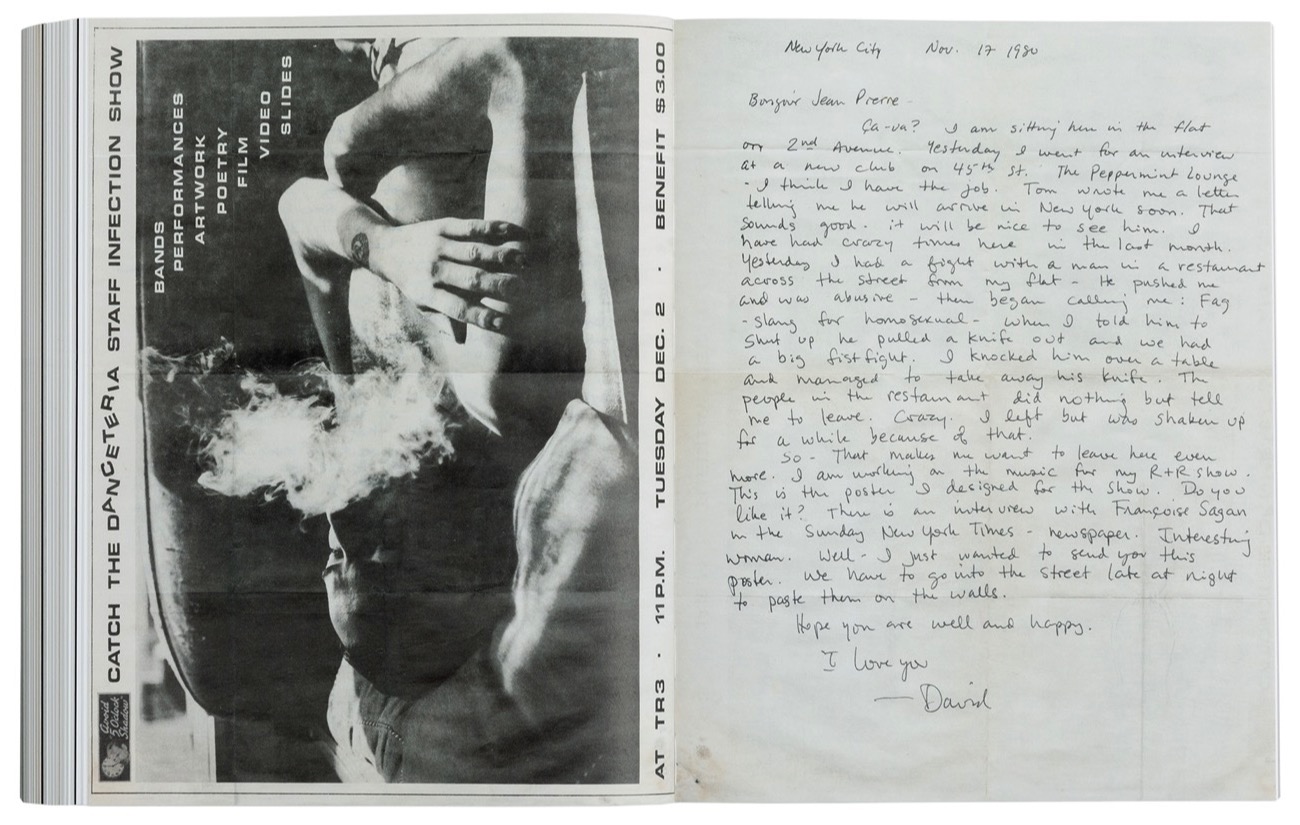 CATCH THE DANCETERIA STAFF INFECTION SHOW
BANDS
PERFORMANCES
ARTWORK
POETRY
FILM
VIDEO
SLIDES
AT TR3 · 11 P.M. TUESDAY DEC. 2 · BENEFIT $3.00
Avoid
5 O'clock
Shadow
New York City Nov. 17 1980
Bonjour Jean Pierre -
Ça-va? I am sitting here in the flat
on 2nd Avenue. Yesterday I went for an interview
at a new club on 45th st. The Peppermint Lounge
- I think I have the job. Tom wrote me a letter
telling me he will arrive in New York soon. That
sounds good. it will be nice to see him. I
have had crazy times here in the last month.
Yesterday I had a fight with a man in a restaurant
across the street from my flat - He pushed me
and was abusive - then began calling me: Fag
- slang for homosexual - when I told him to
shut up he pulled a knife out and we had
a big fistfight. I knocked him over a table
and managed to take away his knife. The
people in the restaurant did nothing but tell
me to leave. Crazy. I left but was shaken up
for a while because of that.
So - That makes me want to leave here even
more. I am working on the music for my R+R show.
This is the poster I designed for the show. Do you
like it? There is an interview with Françoise Sagan
in the Sunday New York Times - newspaper. Interesting
woman. Well - I just wanted to send you this
poster. We have to go into the street late at night
to paste them on the walls.
Hope you are well and happy.
I love you
— David